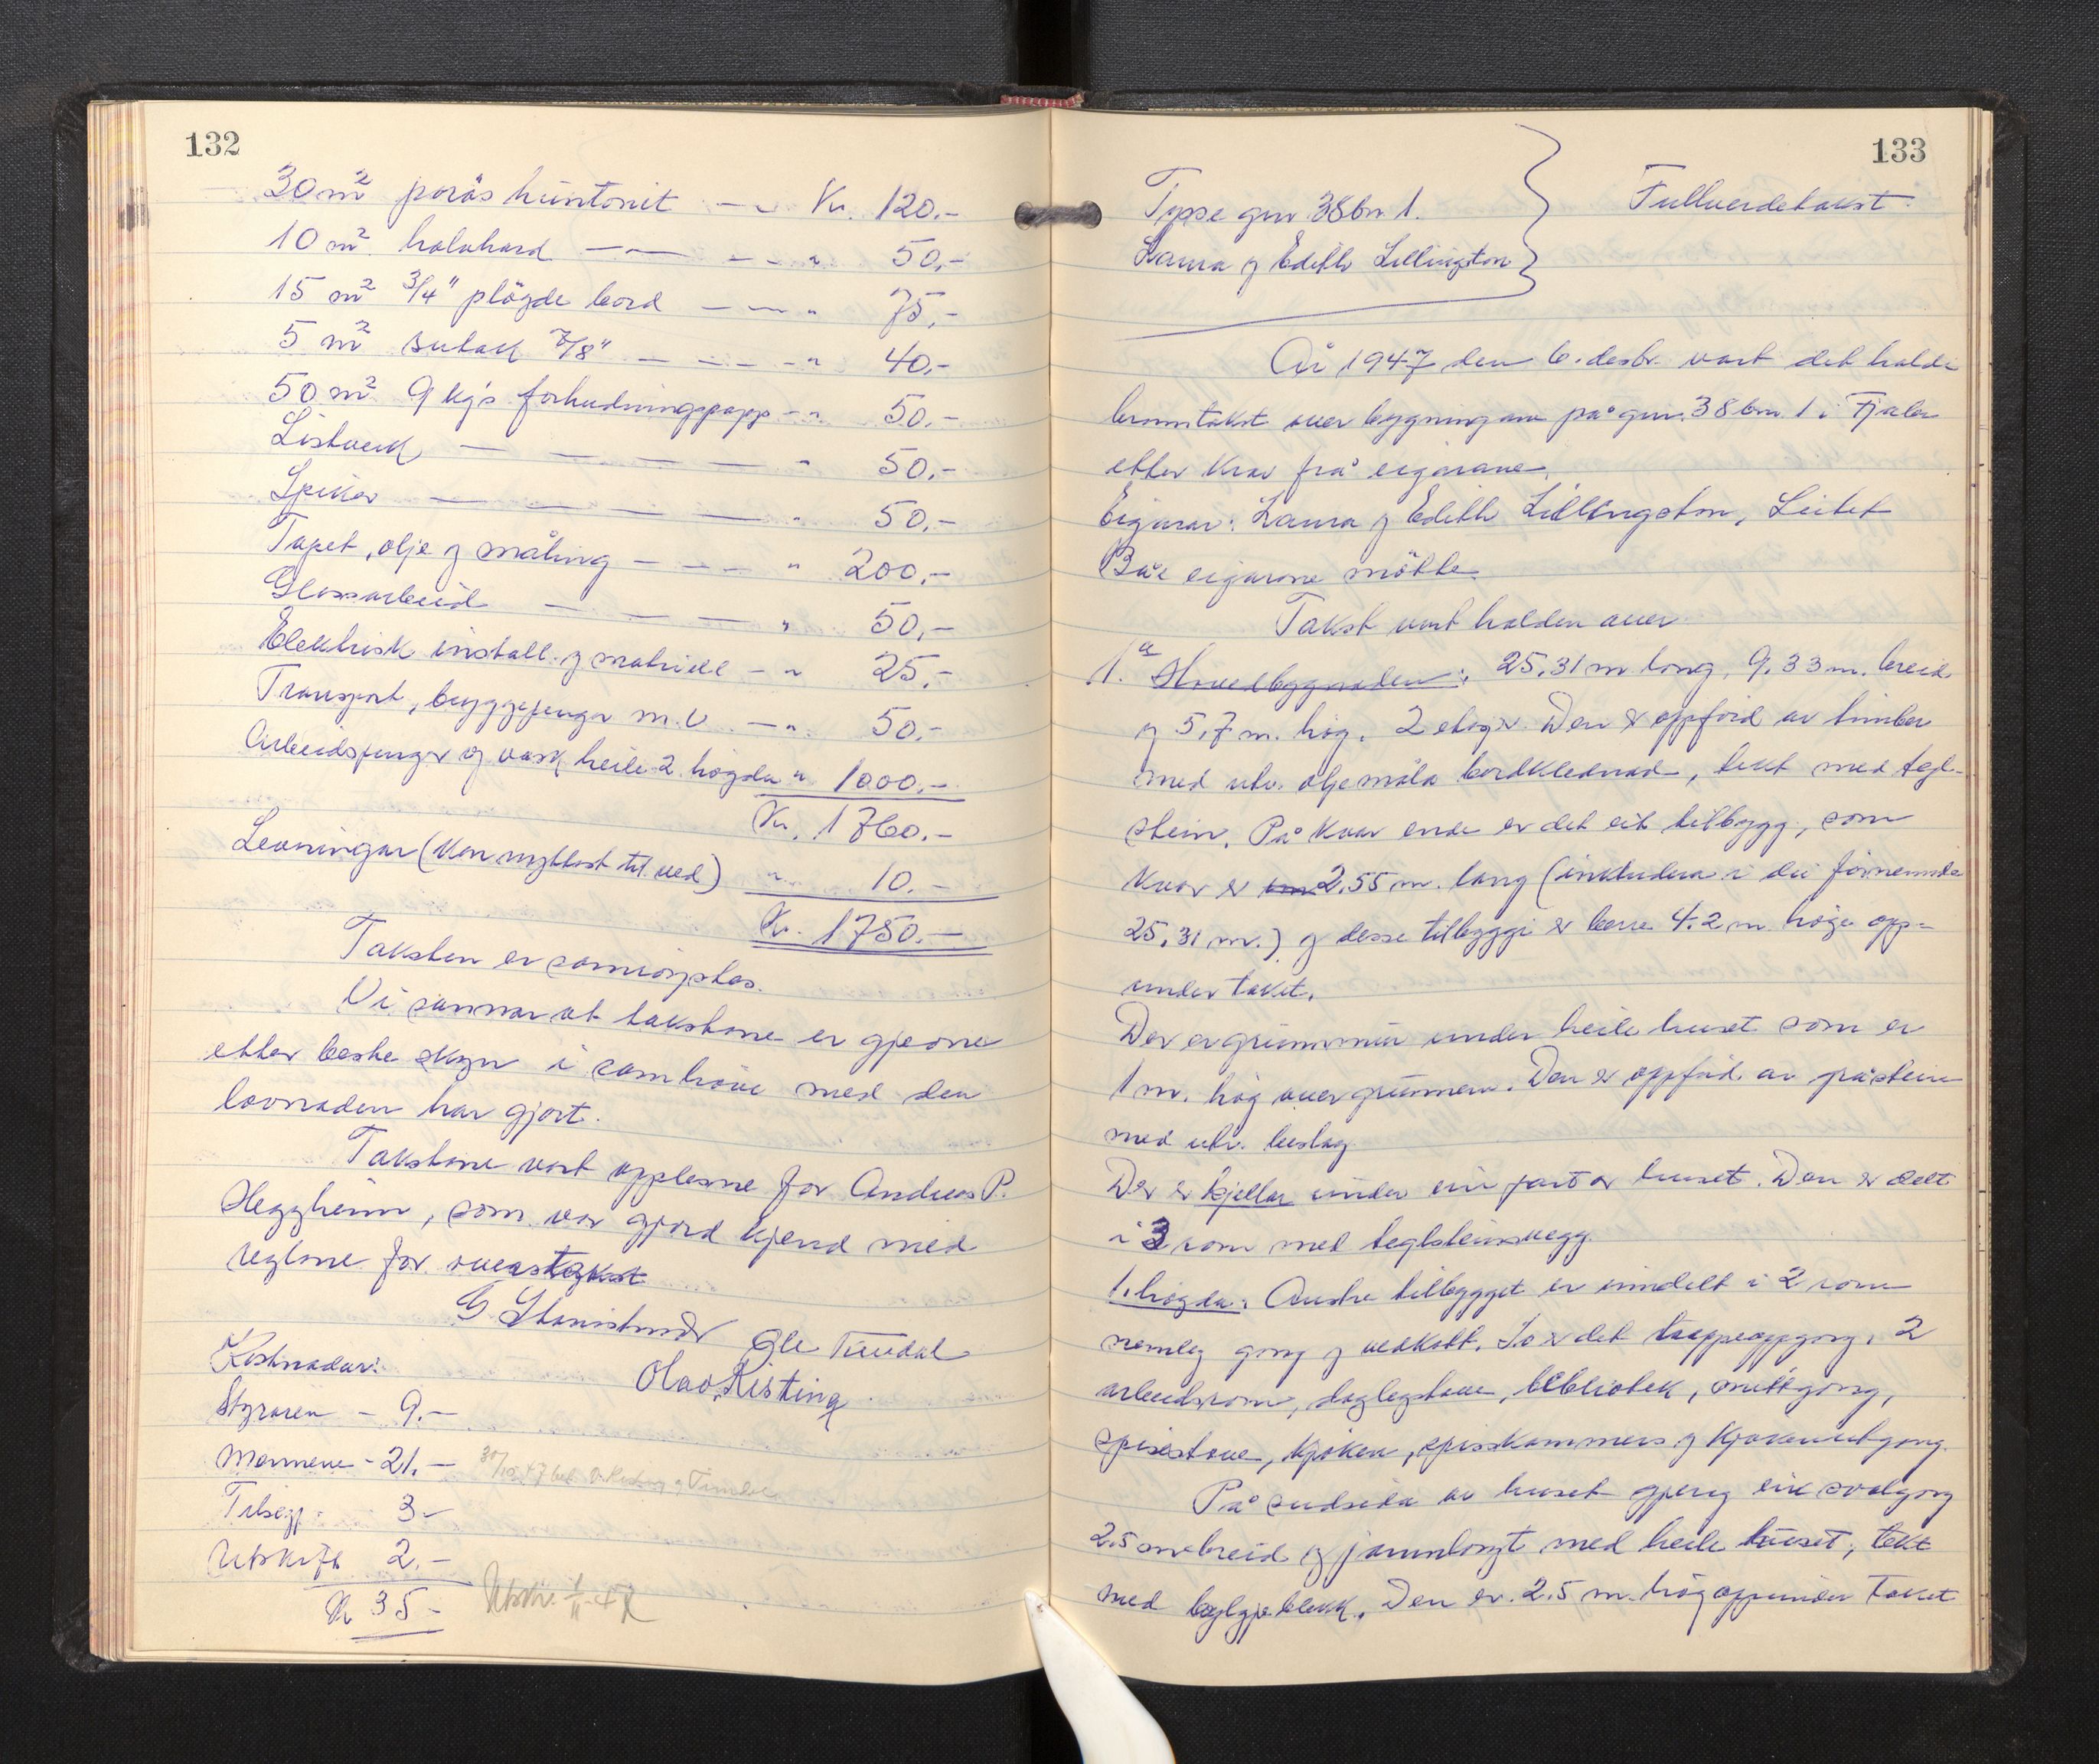 132
30 m² porøs huntonit — " Kr. 120.-
10 m² halvhard — — — " 50,-
15 m² 3/4" pløgde bord — — " 75,-
5 m² sutak 7/8" — — — " 40,-
50 m² 9 kg's forhudningspapp - " 50.-
Listverk — — — — " 50,-
Spiker — — — — " 50,-
Tapet, olje og måling — — — " 200,-
Glassarbeid — — — " 50,-
Elektrisk install. og matriell - " 25,-
Transport, byggjepengar m.v. — " 50,-
Arbeidspengar og vask heile 2. høgda " 1000,-
Kr. 1760.-
Levningar (kan nyttast til ved) " 10.-
Kr. 1750.-
Taksten er samrøystes.
Vi sannar at takstane er gjevne
etter beste skyn i samhøve med den
lovnaden har gjort.
Takstane vart opplesne for Andreas P.
Heggheim, som var gjord kjend med
reglane for overtakst
Ole Tundal
Kostnadar:
Olav Risting
Styraren - 9.-
Mennene - 21.-
Tilsegj. 3-
Utskrift 2.-
Kr 35-
133
Tysse gnr 38 bn. 1.
Fullverdetakst.
Laura og Edith Lillingston
År 1947 den 6. desbr. vart det halde
branntakst over bygningane på gnr. 38 bnr. 1 i Fjaler
etter krav frå eigarane.
Eigarar: Laura og Edith Lillingston, Leitet
Båe eigarane møtte.
Takst vart halden over
1. a Hovedbygnaden: 25,31 m lang, 9,33 m. breid
og 5,7 m. høg. 2 etagr. Den er oppførd av timber
med utv. oljemåla bordklednad, tekt med tegl-
stein. På kvar ende er det eit tilbygg, som
kvar er 2,55 m. lang (inkludera i dei førnemnde
25,31 m.) og desse tilbyggi er berre 4.2 m høge opp-
under taket.
Der er grunnmur under heile huset som er
1 m. høg over grunnen. Den er oppførd av gråstein
med utv. beslag
Der er kjellar under ein part av huset. Den er delt
i 3 rom med teglsteinsvegg.
1. høgda: Austre tilbygget er inndelt i 2 rom
nemleg gang og vedkott. So er det trappeoppgang, 2
arbeidsrom, daglegstove, bibliotek, midtgang,
spisestove, kjøken, spisskammers og kjøkenutgang.
På sudsida av huset gjeng ein svalgang
2.5 m breid og jamnlangt med heile huset, tekt
med bylgjeblekk. Den er 2.5 m. høg oppunder taket